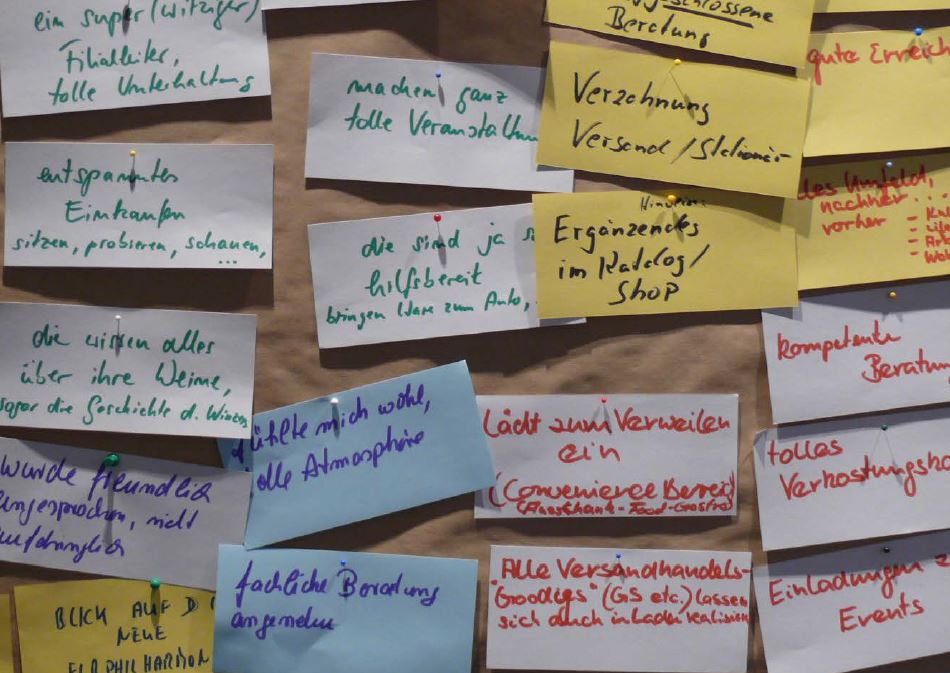 ein super (witziger)
Filialleiter,
tolle Unterhaltung
entspanntes
Einkaufen
sitzen, probieren, schauen,
...
die wissen alles
über ihre Weine,
sogar die Geschichte d. Winzer
wurde freundlich
angesprochen, nicht
aufdringlich
BLICK AUF D
NEUE
ELBPHILHARMON
machen ganz
tolle Veranstaltun
die sind ja s
hilfsbereit
bringen Ware zum Auto,
fühlte mich wohl,
olle Atmosphäre
fachliche Beratung
angenehm
geschlossene
Beratung
Verzahnung
Versand / Stationär
Hinweise:
Ergänzendes
im Katalog/
Shop
Lädt zum Verweilen
ein
(Convenience Bereich)
(Ausschank-Food-Gastro)
Alle Versandhandels-
"Goodies" (GS etc.) lassen
sich auch in Laden realisieren
gute Erreich
des Umfeld,
nachher ...
vorher
kompetente
Beratun
tolles
Verkostungsko
Einladungen z
Events